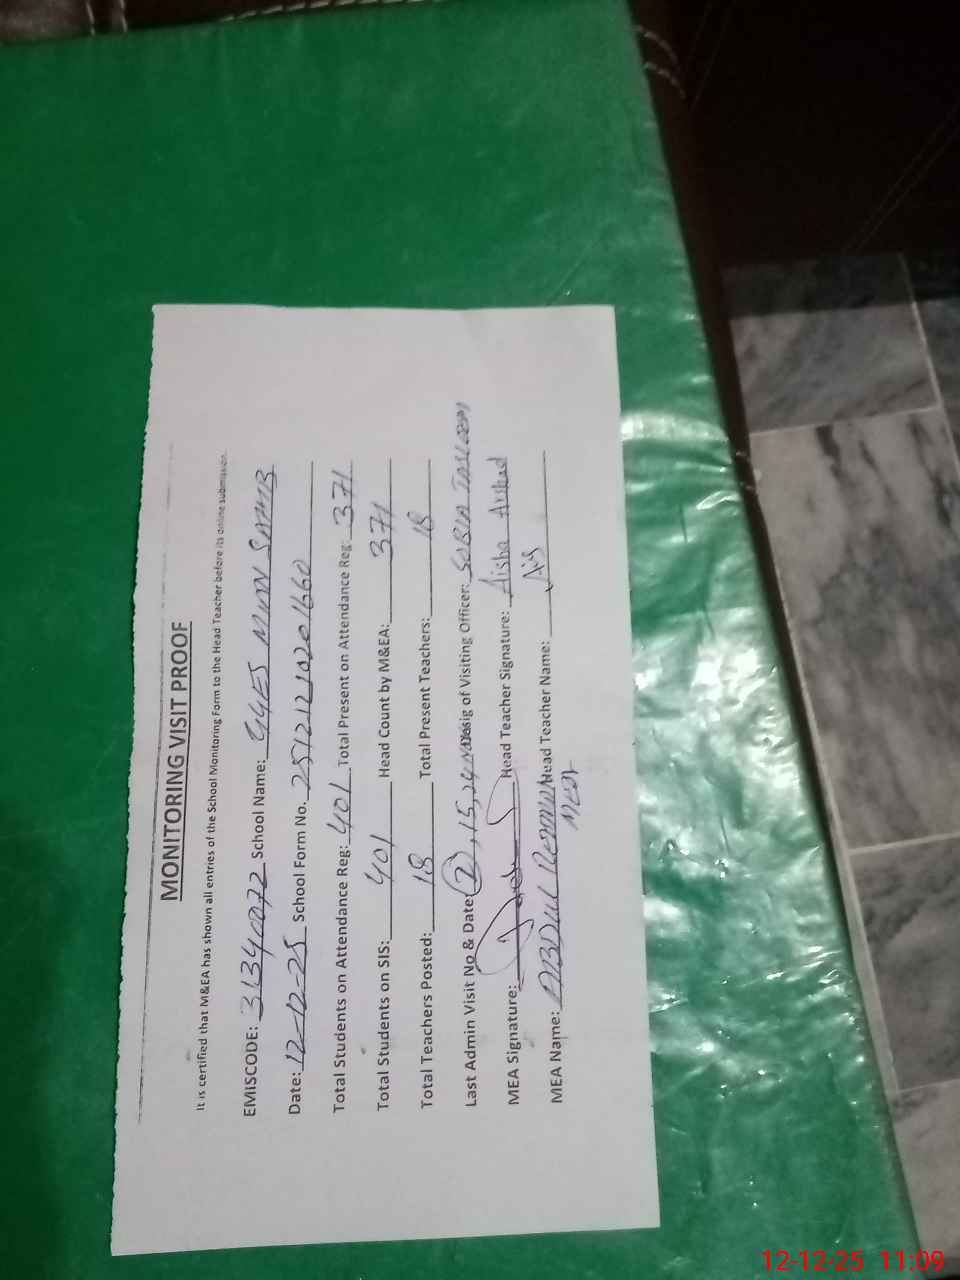 MONITORING VISIT PROOF
It is certified that M&EA has shown all entries of the School Monitoring Form to the Head Teacher before its online submission.
EMISCODE: 31340072 School Name: GGES MIAN SAHIB
Date: 12-12-25 School Form No. 25121210201660
Total Students on Attendance Reg: 401 Total Present on Attendance Reg: 371
Total Students on SIS: 401 Head Count by M&EA: 371
Total Teachers Posted: 18 Total Present Teachers: 18
Last Admin Visit No & Date 2, 15, 24 Sig of Visiting Officer: SOBIA
MEA Signature: Head Teacher Signature: Aisha Arshad
MEA Name: ABDUL REHMAN Head Teacher Name: Ais
12-12-25 11:09